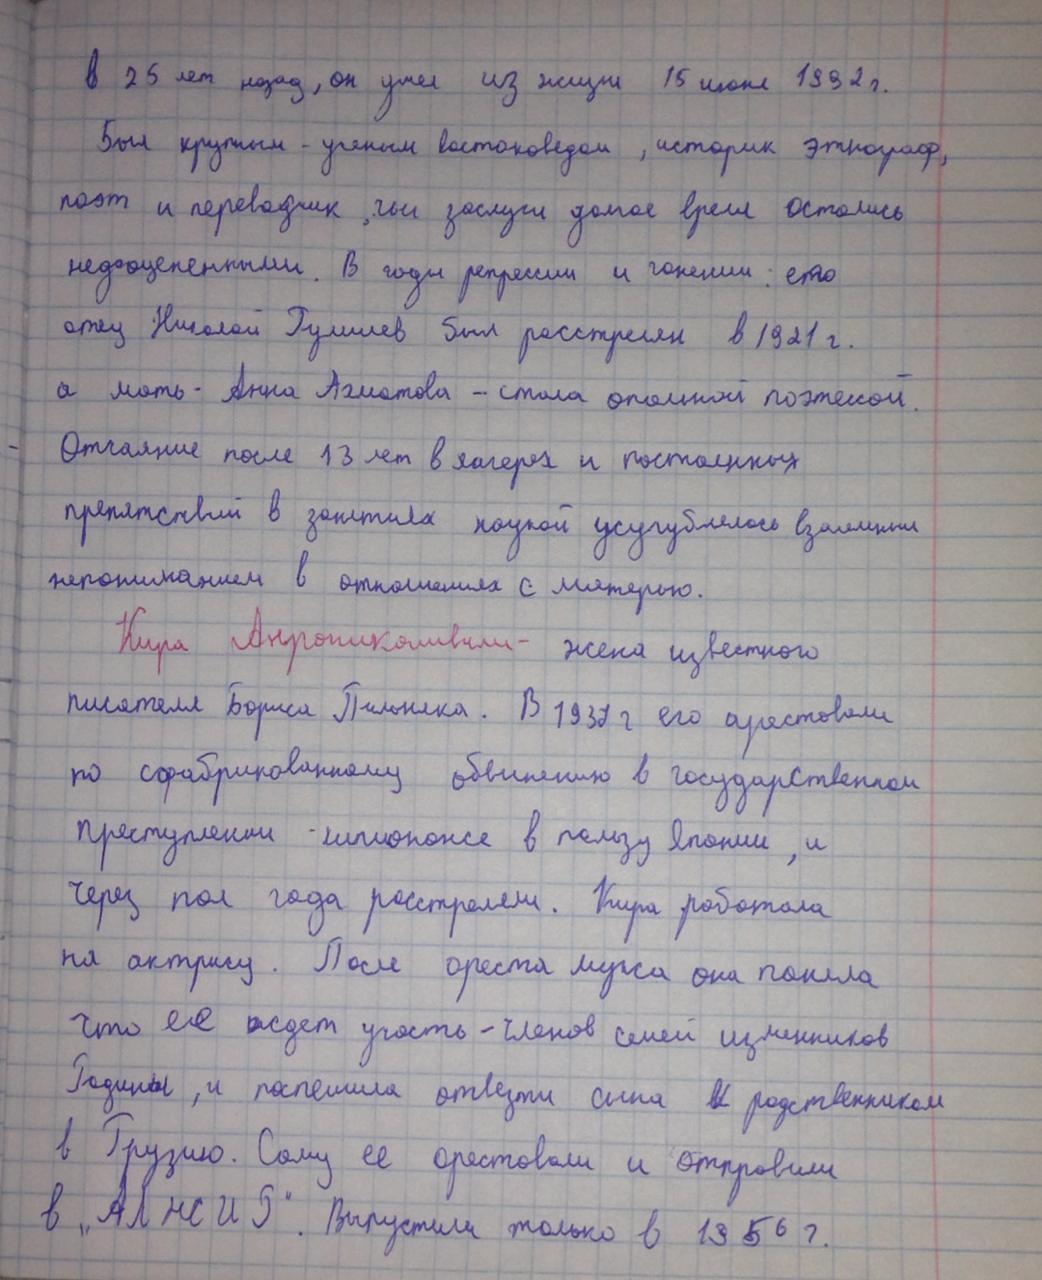 В 25 лет назад, он ушел из жизни 15 июня 1992 г.
Был крупным - ученым востоковедом, историк этнограф,
поэт и переводчик, чьи заслуги долгое время остались
недооцененными. В годы репрессии и гонении: его
отец Николай Гумилев был расстрелян в 1921 г.
а мать - Анна Ахматова - стала опальной поэтессой.
Отчаяние после 13 лет в лагерях и постоянных
препятствий в занятиях наукой усугублялось взаимным
непониманием в отношениях с матерью.
Кира Анроникашвили - жена известного
писателя Бориса Пильняка. В 1937 г его арестовали
по сфабрикованному обвинению в государственном
преступлении - шпионаже в пользу Японии, и
через пол года расстреляли. Кира работала
на актрису. После ареста мужа она поняла
что ее ждет участь - членов семей изменников
Родины, и поспешила отвезти сына к родственникам
в Грузию. Саму ее арестовали и отправили
в "АЛЖСИР". Выпустили только в 1956 г.